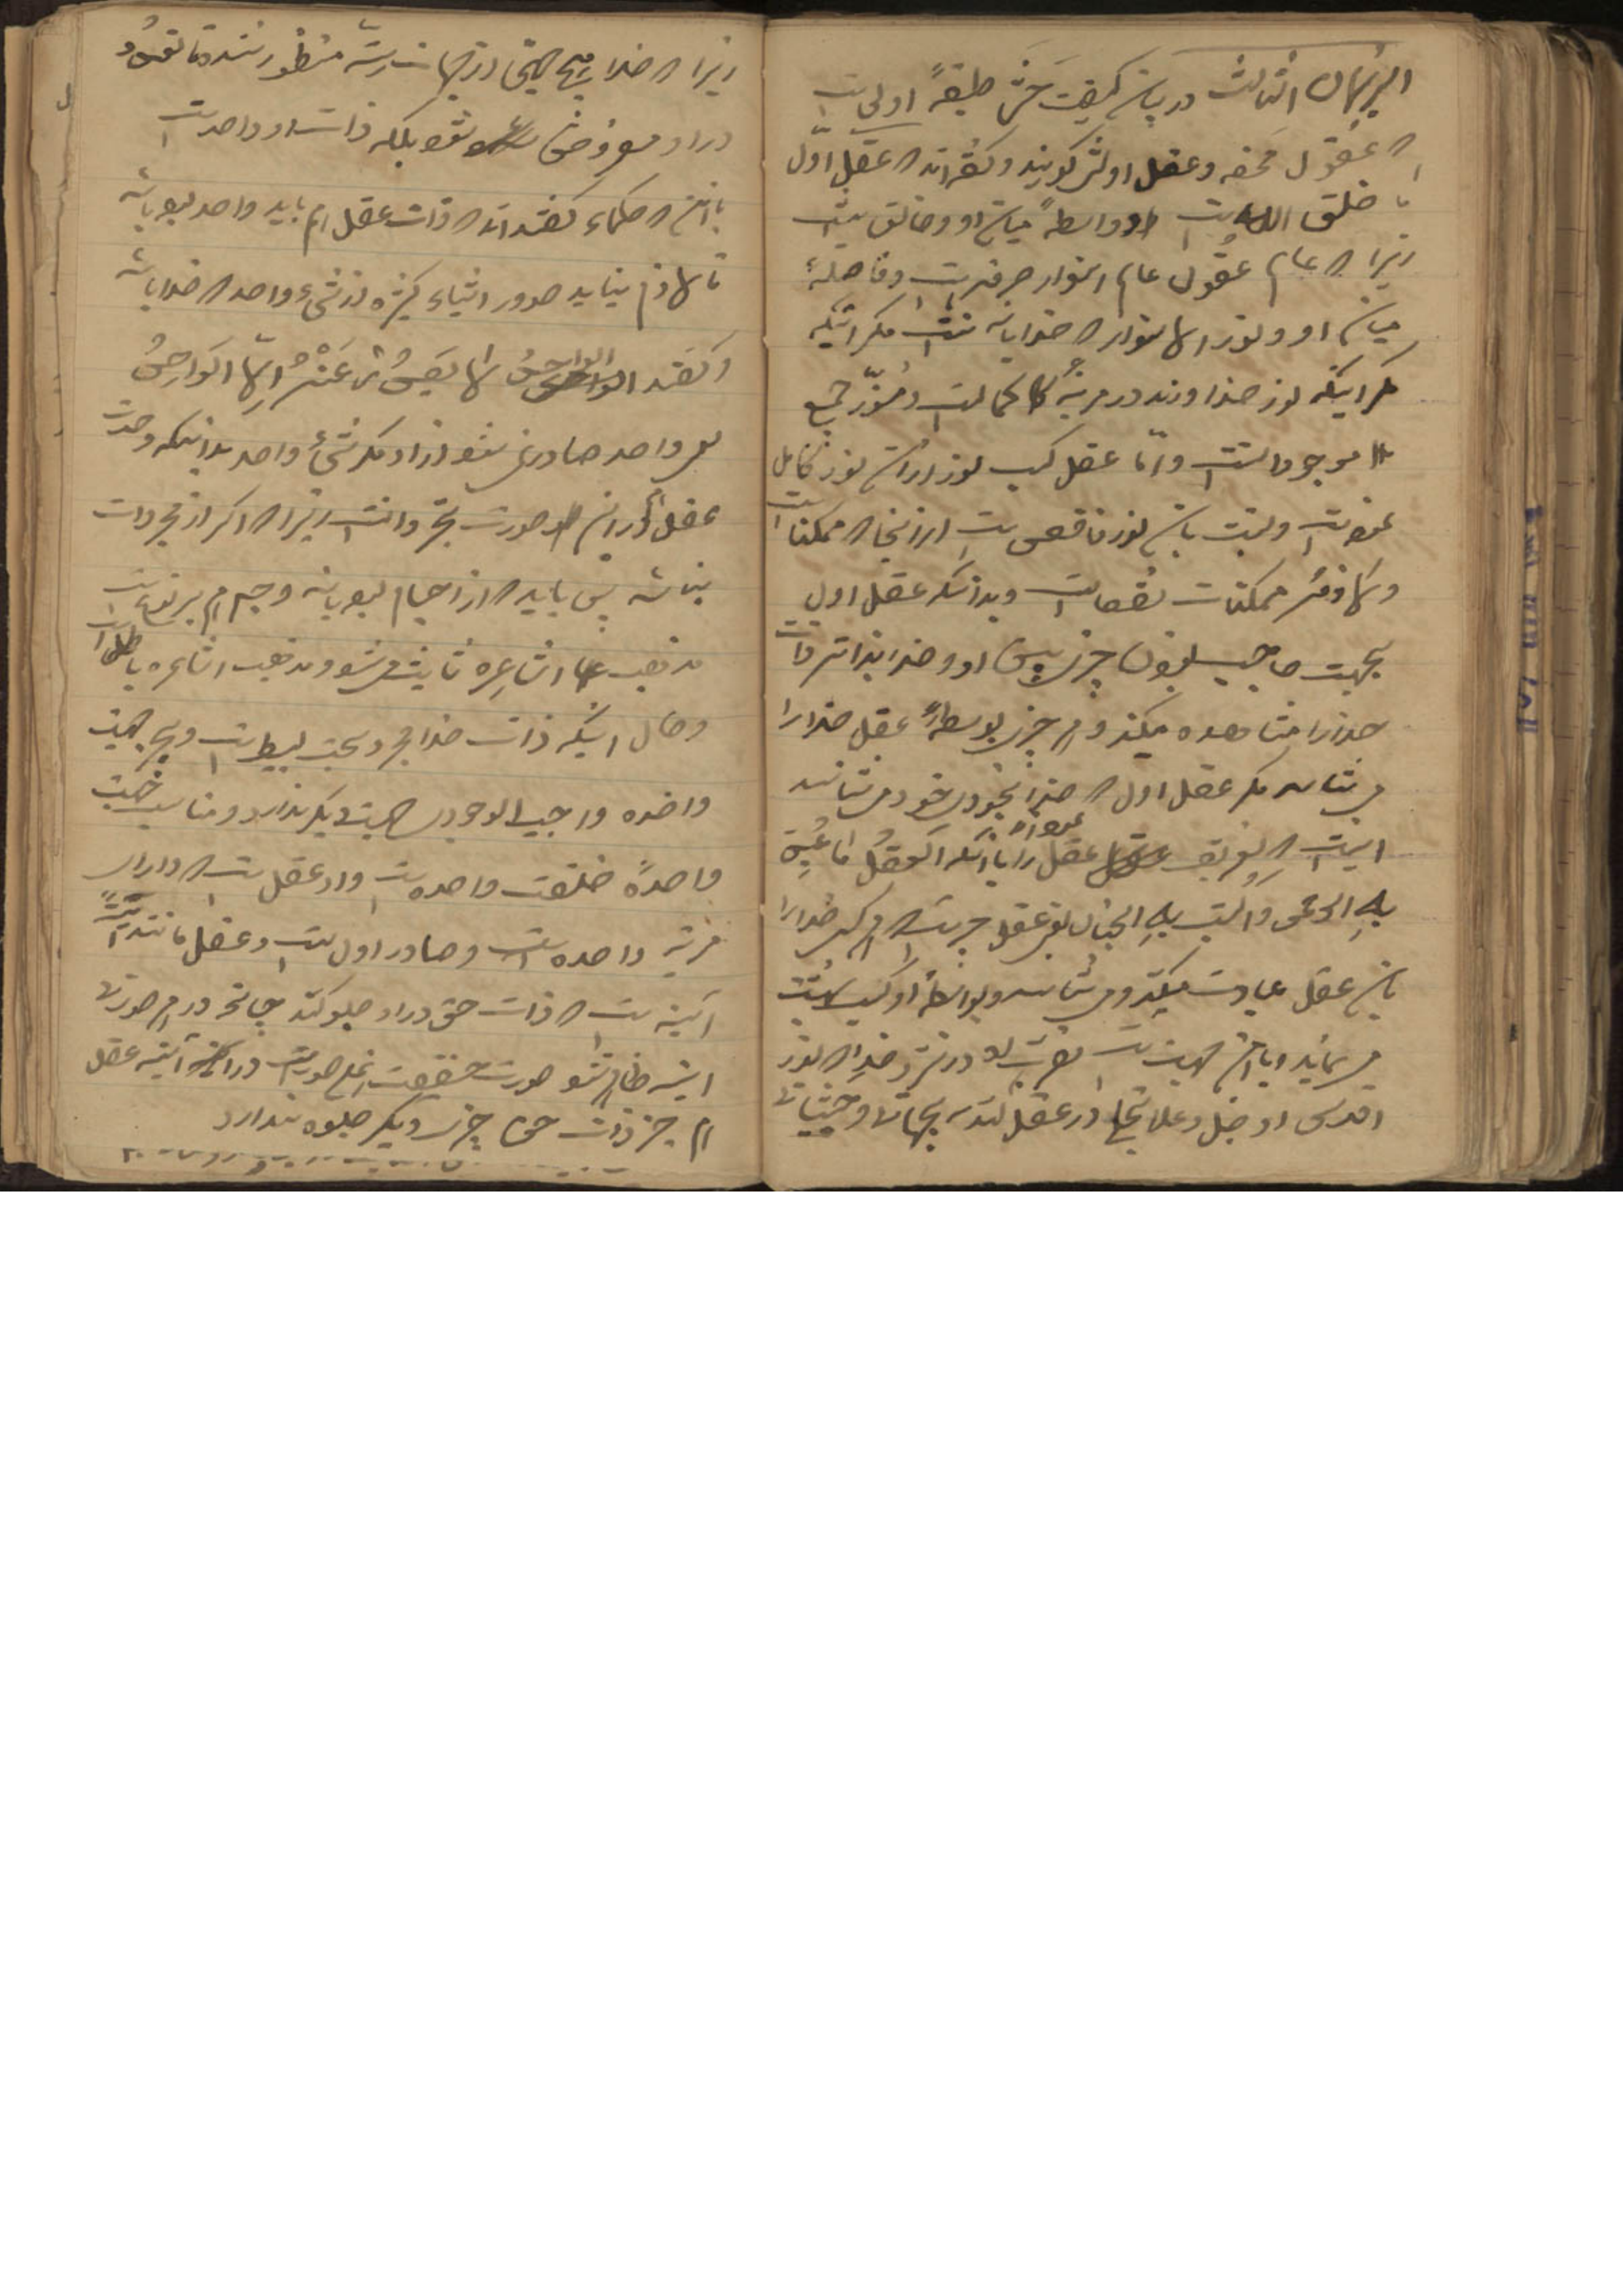 البرهان الثالث در بیان کیفیت حشر طبقهٔ اولی است
که عقول محضه و عقل اولش گویند و گفته‌اند که عقل اول
با خلق الله است و واسطهٔ میان او و خالق نیست
زیرا که عالم عقول عالم انوار صرفه است و فاصلهٔ
میان او و نور الانوار که خدا باشد نیست مگر اینکه
مگر اینکه نور خداوند در مرتبهٔ کمال است و منوّر جمیع
موجوداتست و امّا عقل کسب نور از آن نور کامل
نموده است و نسبت بآن نور ناقص است از آنجا که ممکنات است
و لازمهٔ ممکنات نقصانست و بدانکه عقل اول
بجهت حاجب نبودن چیزی بین او و خدا بذاته ذات
خدا را مشاهده میکند و هر چیزی بواسطهٔ عقل خدا را
می‌شناسد مگر عقل اول که خدا را بخودی خود می‌شناسد
اینست که تعریف نموده‌اند عقل را بآنکه العقل ما عبد
به الرحمن و اکتسب به الجنان یعنی عقل چیزیست که هر کس خدا را
بآن عقل عبادت میکند و می‌شناسد و بواسطهٔ او کسب بهشت
می‌نماید و باین جهت است تقرب او در نزد خدا که نور
اقدس او جل و علا تجلی در عقل کند بجهات و حیثیات
زیرا که خدا بهیچ جهتی از جهات منظور نشده تا نقص
در او مفروض شود بلکه ذات او واحد است
باین که حکماء گفته‌اند که ذات عقل هم باید واحد بوده باشد
تا لازم نیاید صدور اشیاء کثیره از شیء واحد که خدا باشد
و گفتند الواحد لا یصدر عنه الا الواحد
یعنی واحد صادر نمی‌شود از او مگر شیء واحد بدانکه وحدت
عقل از آن صورت تجرد آنست زیرا که اگر از مجردات
نباشد پس باید که از اجسام بوده باشد و جسم هم بر
مذهب اشاعره ثابت می‌شود و مذهب اشاعره باطل است
و حال اینکه ذات خدا مجرد بحت بسیط است و بجهت
واحده واجب الوجودی جهت دیگر ندارد و مناسب جهت
واحدهٔ خلقت واحده است و او عقل است که دارای
مرتبهٔ واحده است و صادر اول است و عقل مانند
آینه است که ذات حق در او جلوه کند چنانچه در هر صورت
آینه ظاهر شود صورت حقیقت همان صورتست در آینه عقل
هم جز ذات حق چیزی دیگر جلوه ندارد